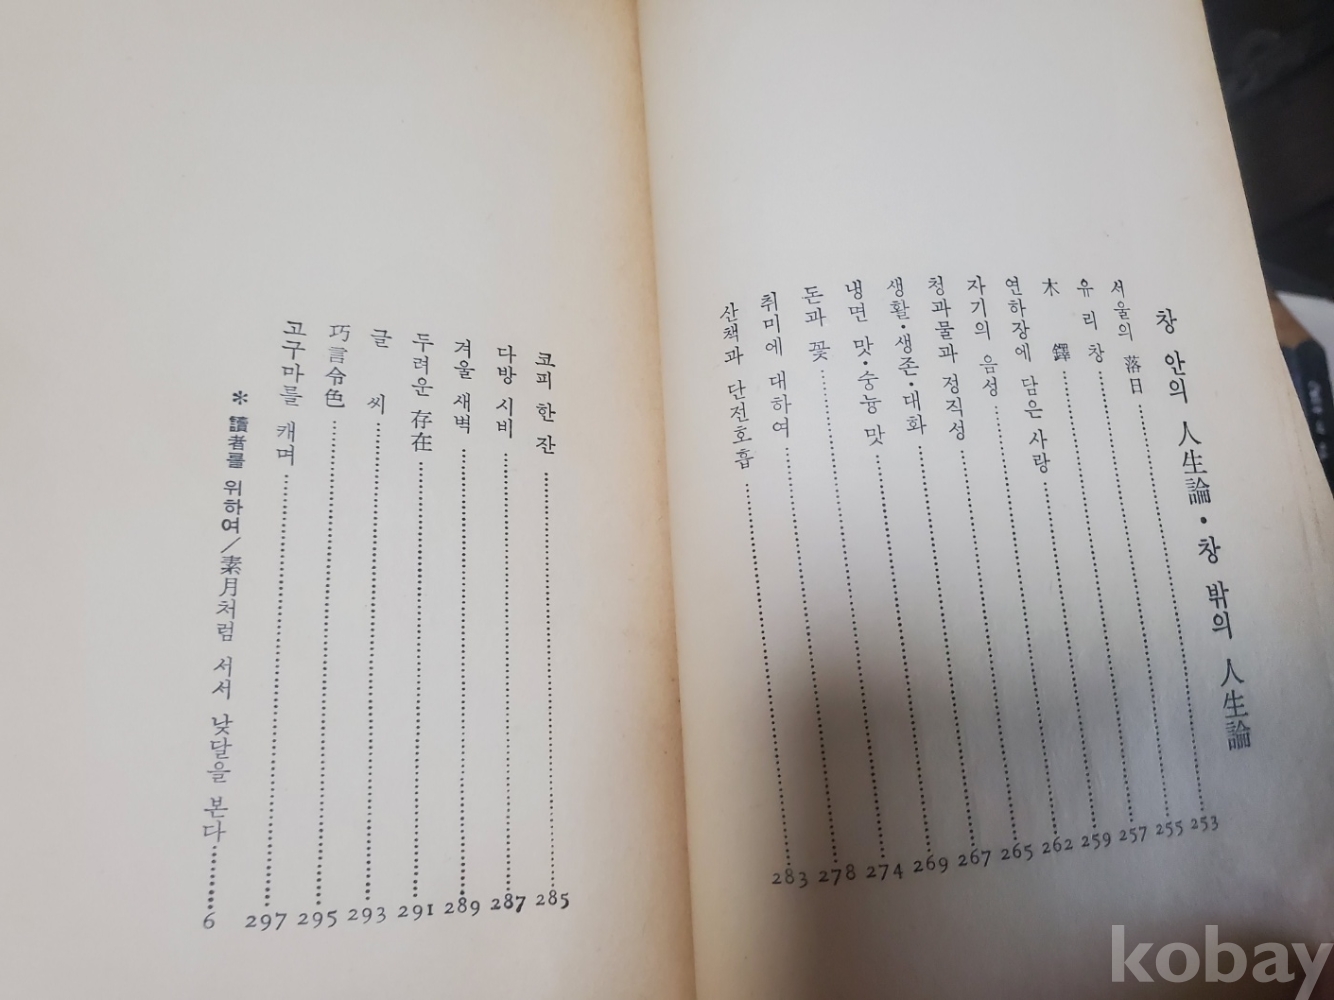 창 안의 人生論·창 밖의 人生論
서울의 落日 253
유리창 255
木 鐸 257
연하장에 담은 사랑 259
자기의 음성 262
청과물과 정직성 265
생활·생존·대화 267
냉면 맛·숭늉 맛 269
돈과 꽃 274
취미에 대하여 278
산책과 단전호흡 283
코피 한 잔 285
다방 시비 287
겨울 새벽 289
두려운 存在 291
글 씨 293
巧言令色 295
고구마를 캐며 297
* 讀者를 위하여/素月처럼 서서 낮달을 본다 6
kobay